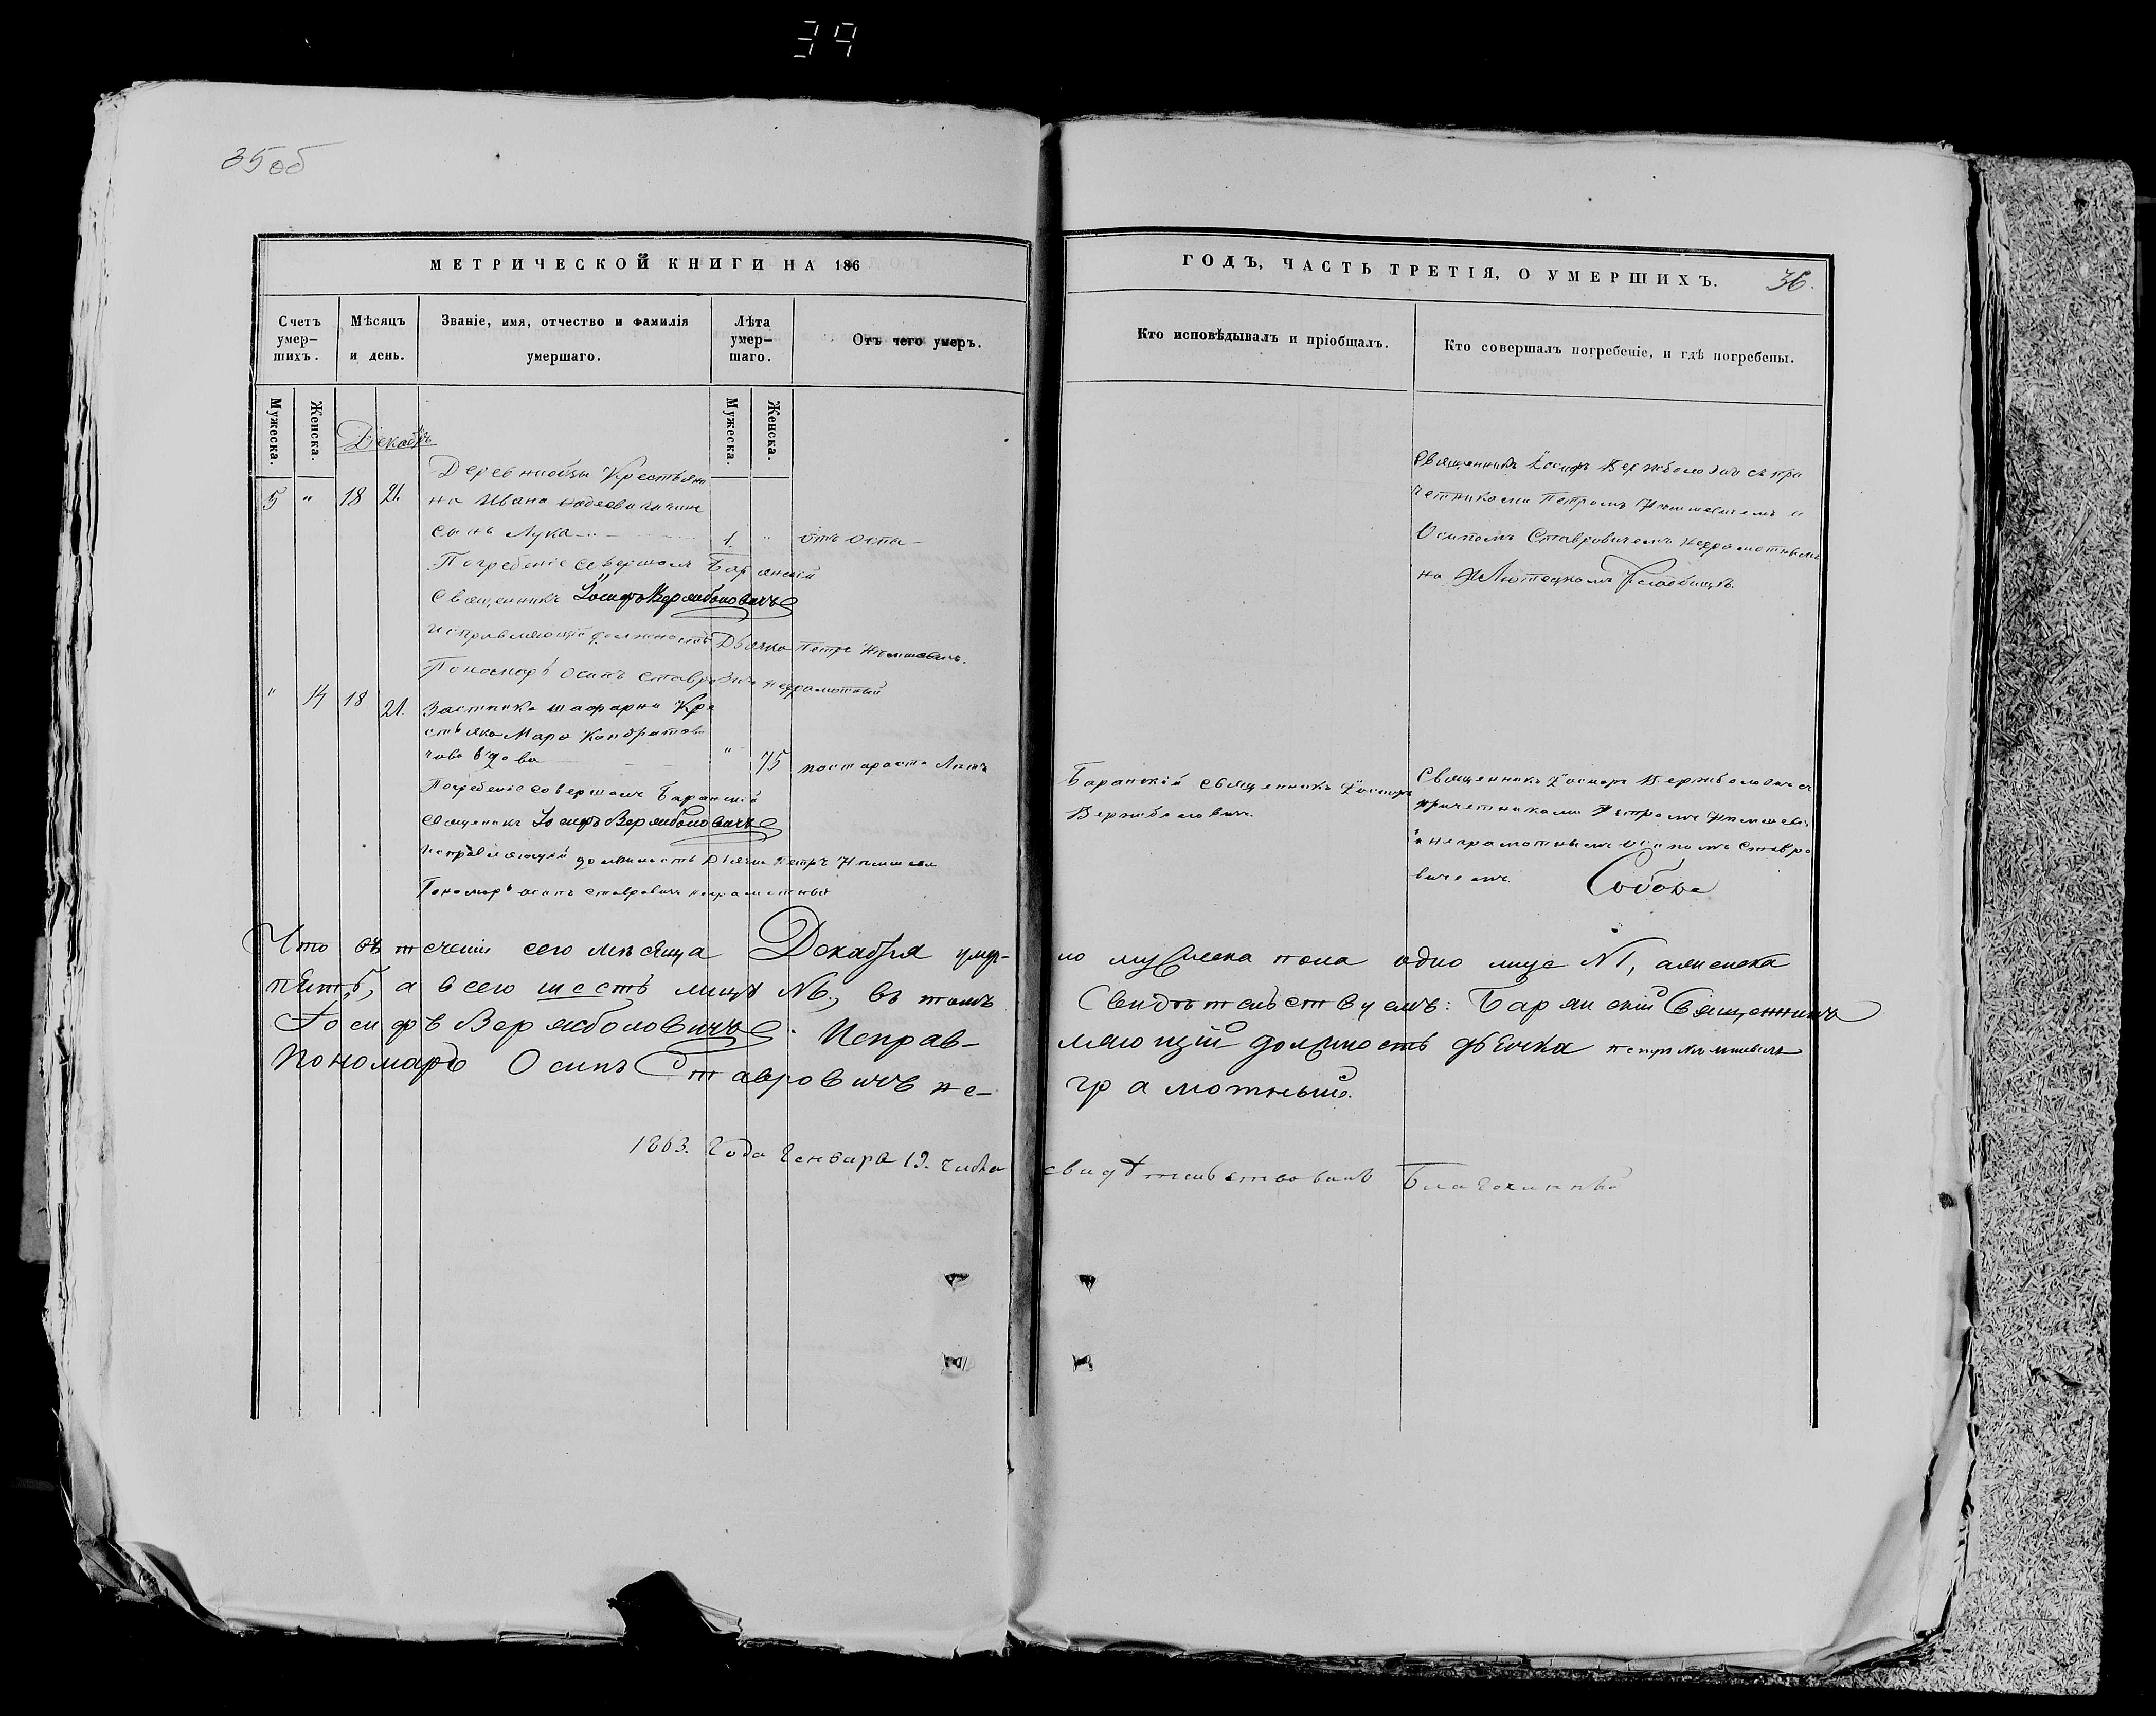 34
35об
МЕТРИЧЕСКОЙ КНИГИ НА 186
Счетъ умер-шихъ.
Мѣсяцъ и день.
Званіе, имя, отчество и фамилія умершаго.
Лѣта умер-шаго.
Отъ чего умеръ.
Мужеска.
Женска.
Мужеска.
Женска.
Декабрь
5 " 18 21.
Деревни Крестьяни
на Ивана
сынъ Лука 1. " отъ оспы
Погребеніе совершалъ Барянскій
Священникъ Іосифъ Вержболовичъ
Исправляющій должность Дьячка Петръ
Пономарь Осипъ Ставровичъ неграмотный
" 14 18 21.
Застенка Кре
стьянка Кондратов
чова вдова " 75 по старости лѣтъ
Погребеніе совершалъ Баранскій
Священникъ Іосифъ Вержболовичъ
Исправляющій должность Дьячка Петръ
Пономарь Осипъ Ставровичъ неграмотный
Что въ теченіи сего мѣсяца Декабря умер-
пять, а всего шесть лицъ №6, въ томъ
Іосифъ Вержболовичъ. Исправ-
Пономарь Осипъ Ставровичъ не-
1863. Года Генваря 19. числа
ГОДЪ, ЧАСТЬ ТРЕТІЯ, О УМЕРШИХЪ.
36.
Кто исповѣдывалъ и пріобщалъ.
Кто совершалъ погребеніе, и гдѣ погребены.
Священникъ Іосифъ Вержболовичъ съ при
четниками Петромъ и
Осипомъ Ставровичемъ неграмотнымъ
на Кладбищѣ.
Баранскій Священникъ Іосифъ
Вержболовичъ.
Священникъ Іосифъ Вержболовичъ съ
причетниками Петромъ
и неграмотнымъ Осипомъ Ставро
вичемъ.
ло мужеска пола одно лице №1, а женска
Свидѣтельствуемъ: Барянскій Священникъ
ляющій должность дьячка Петръ
грамотный.
свидѣтельствовалъ Благочинный